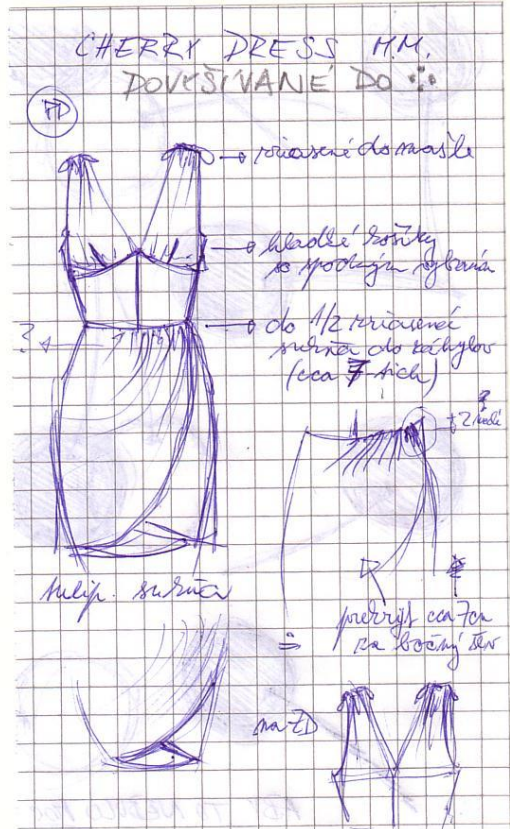 CHERRY DRESS M.M.
DOVYŠÍVANÉ DO
PD
zriasené do mašle
hladké košíky
so spodným
do 1/2 zriasená
sukňa do záhybov
(cca 7-ich)
?
?
+2
tulip. sukňa
prekrýť cca 7cm
za bočný šev
na ZD